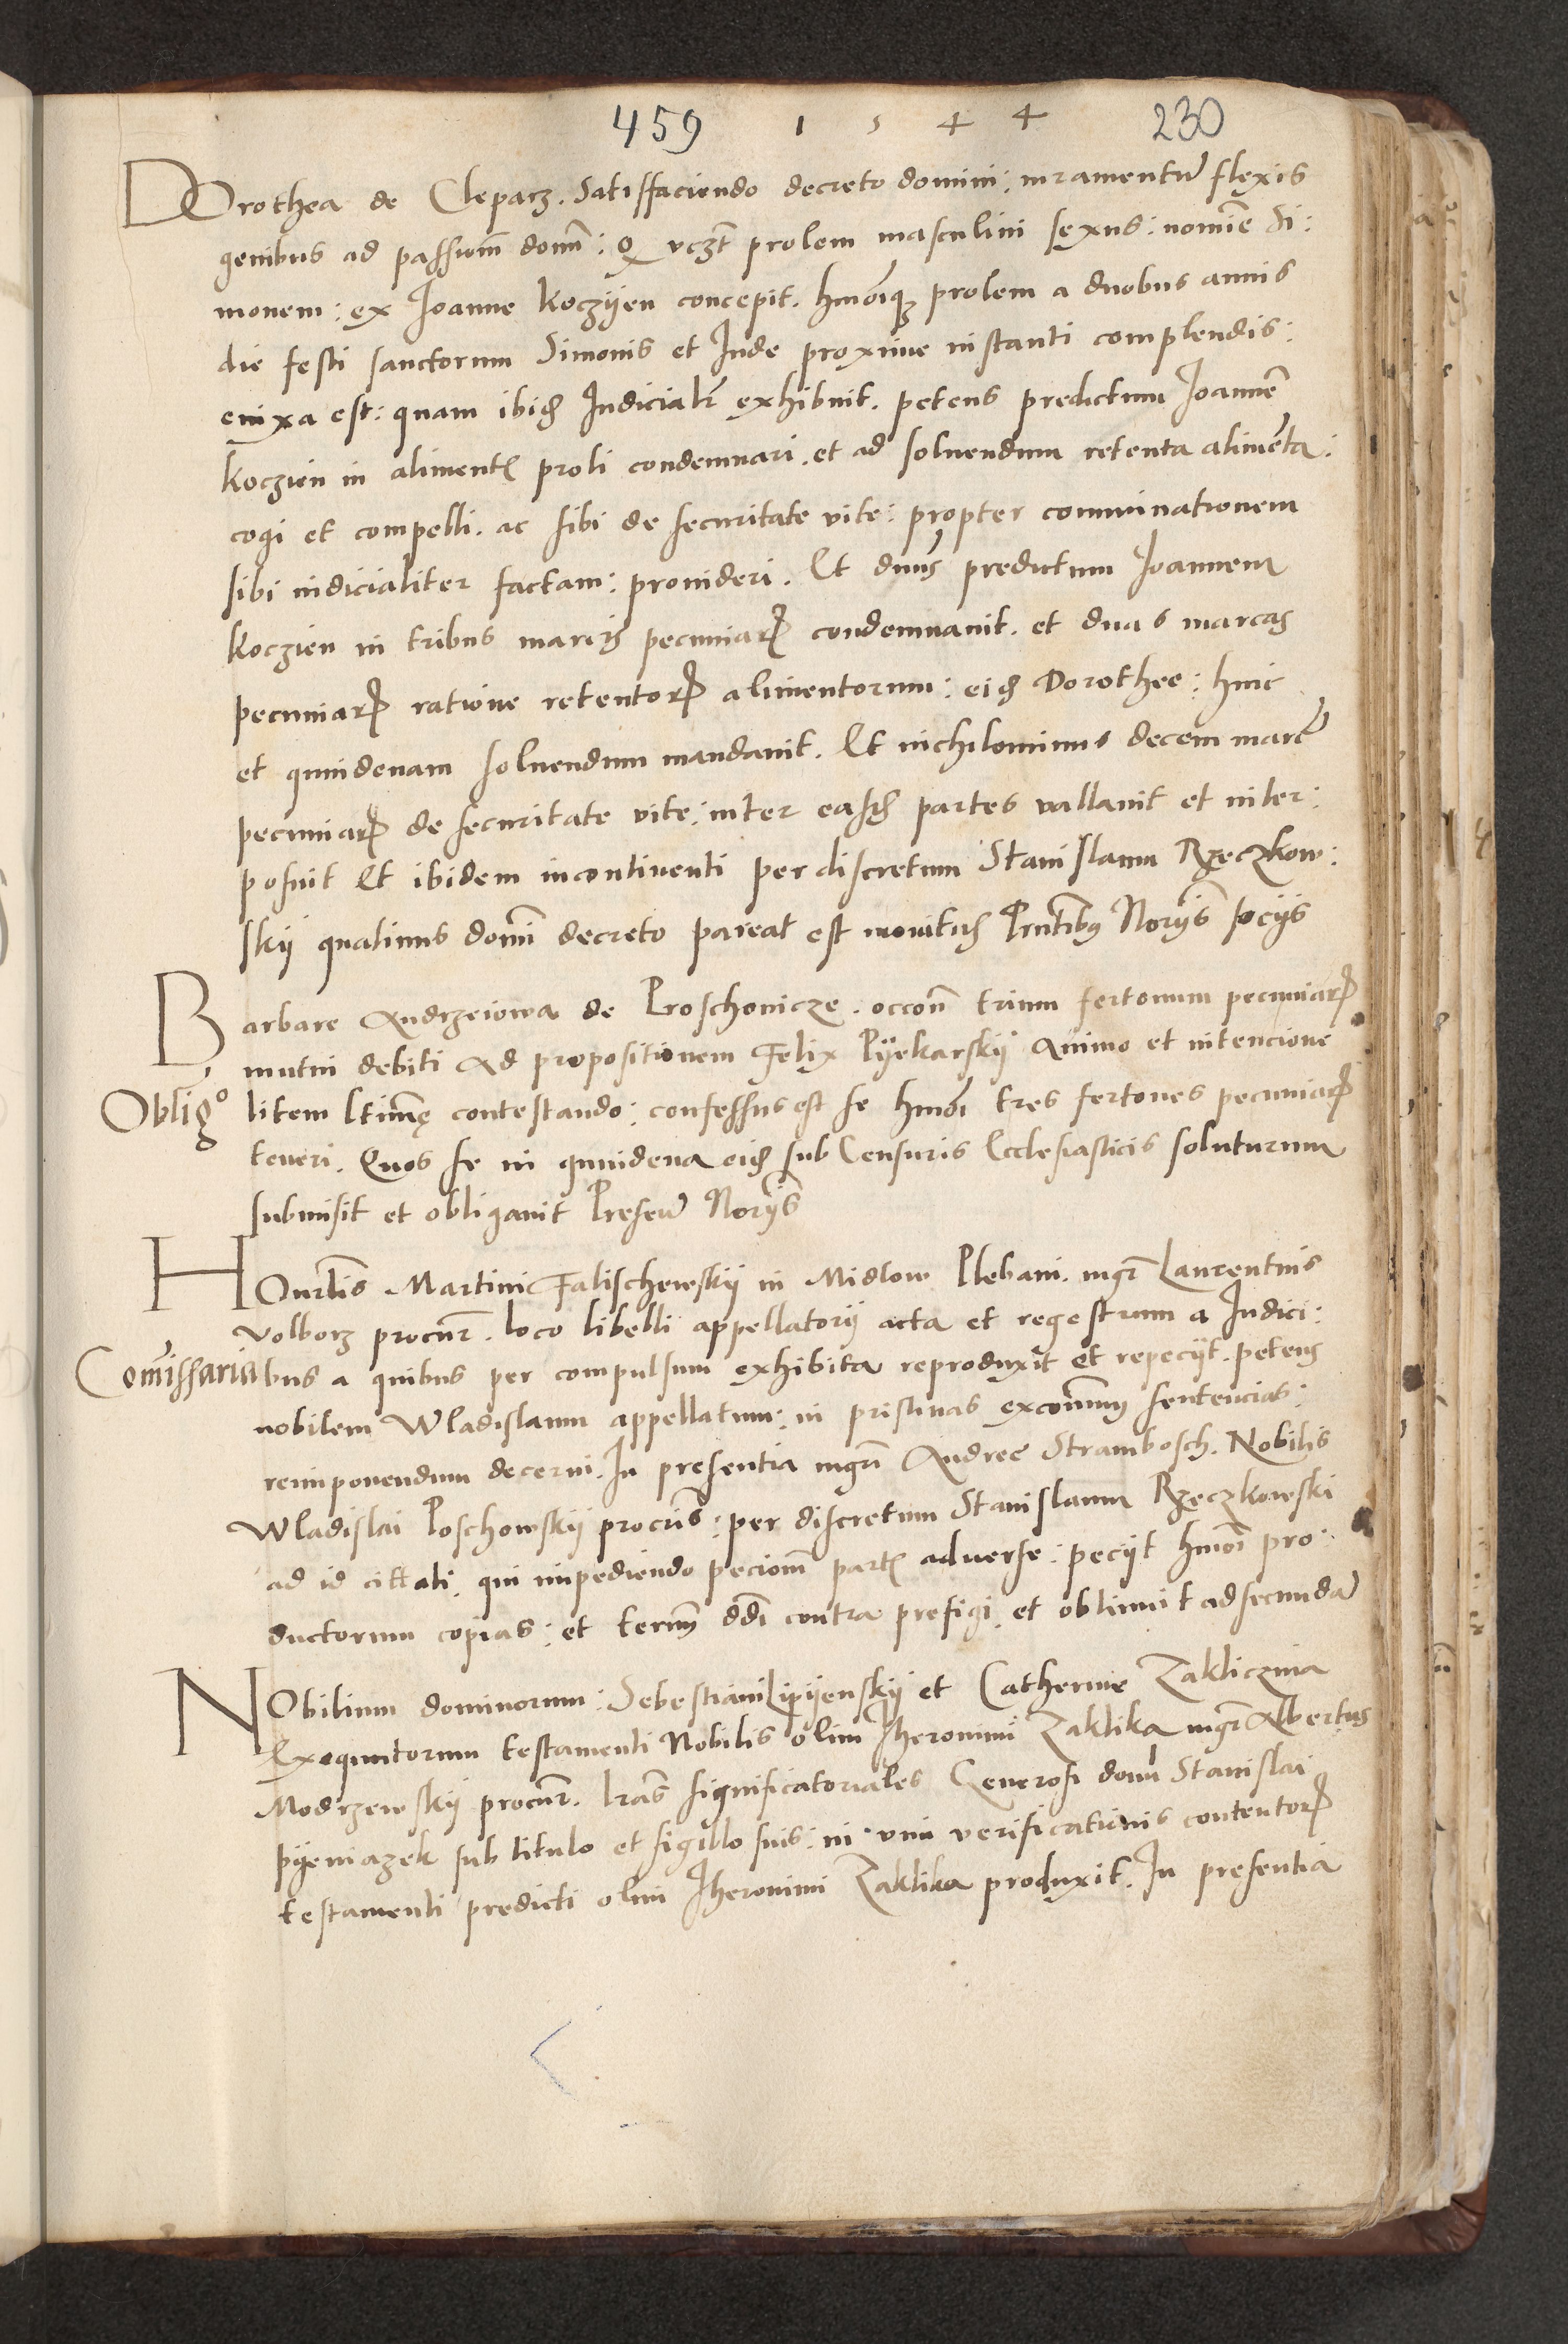 459 1 5 4 4 230
DOrothea de Cleparz. Satisfaciendo decreto domini: iuramentū flexis
genibus ad passionē domī: q̄ vczt prolem masculini sexus: nomīe Si:
monem: ex Joanne Koczyen concepit. hmōiqȝ prolem a duobus annis
die festi sanctorum Simonis et Iude proxime instanti complendis:
enixa est: quam ibidē Iudicialr̄ exhibuit. petens predictum Joannē
Koczien in alimentꝭ proli condemnari. et ad soluendum retenta alimēta:
cogi et compelli. ac sibi de securitate vite: propter comminationem
sibi iudicialiter factam: prouideri. Et dn̄us predictum Joannem
Koczien in tribus marcis pecuniarꝝ condemnauit. et duas marcas
pecuniarꝝ ratione retentorꝝ alimentorum: eidē Dorothee: hinc
et quindenam soluendum mandauit. Et nichilominus decem marcū
pecuniarꝝ de securitate vite: inter easdē partes vallauit et inter:
posuit Et ibidem incontinenti per discretum Stanislaum Rzeczkow:
skÿ quatinus domī decreto pareat est monitus Pn̄tibus Noriis socÿs
Barbare Andrzeiowa de Proschonicze. occōn trium fertonum pecuniarꝝ
mutui debiti Ad propositionem Felix Pÿekarskÿ Animo et intencione
Obligᵒ litem ltimę contestando: confessus est se hmōi tres fertones pecuniarꝝ
teneri. Quos se in quindena eidē sub Censuris Ecclesiasticis soluturum
submisit et obligauit Presen̄ Norÿs
HOnrlis Martini Falischewskÿ in Midlow Plebani. mgr̄ Laurentius
Volborz procur̄. loco libelli appellatorÿ acta et regestrum a Iudici:
Comissaria bus a quibus per compulsum exhibita reproduxit et repecÿt. petens
nobilem Wladislaum appellatum: in pristinas excōmuns sentencias:
reimponendum decerni. In presentia mgrī Andree Strambosch. Nobilis
Wladislai Poschowskÿ procuris: per discretum Stanislaum Rzeczkowski
ad id cittati. qui impediendo peciom̄ partꝭ aduerse: pecÿt hmōi pro:
ductorum copias: et termm̄ ddī contra prefigi. et obtinuit ad secundā
NObilium dominorum: Sebestiani Lipÿenskÿ et Catherine Zakliczina
Exequutorum testamenti Nobilis olim Jheronimi Zaklika mgr̄ Albertus
Modrzewskÿ procur̄. lrās significatoriales Generosi domī Stanislai
pÿeniazek sub titulo et sigillo suis: in vim verificationis contentorꝝ
testamenti predicti olim Jheronimi Zaklika produxit. In presentia